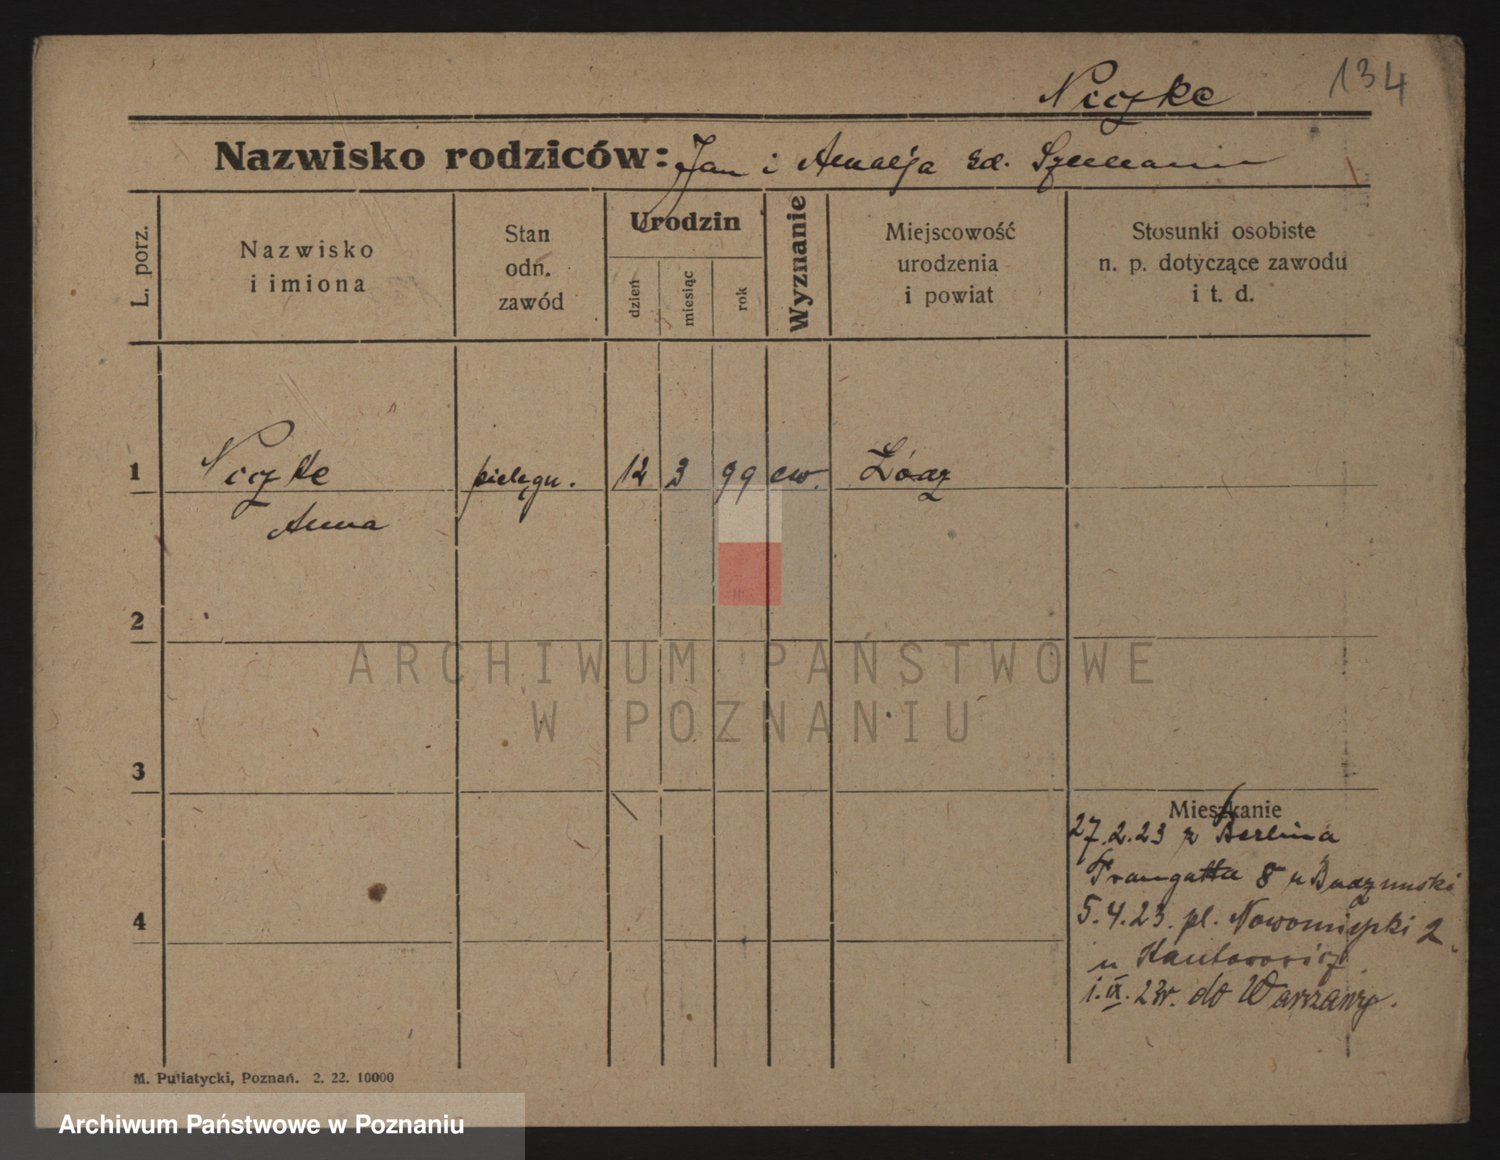 134
Niczke
Nazwisko rodziców: Jan i Amalja zd. Szumann
L. porz.
Nazwisko
i imiona
Stan
odn.
zawód
Urodzin
dzień
miesiąc
rok
Wyznanie
Miejscowość
urodzenia
i powiat
Stosunki osobiste
n. p. dotyczące zawodu
i t. d.
1 Niczke pielęgn. 12 3 99 ew. Łódz
Anna
2
ARCHIWUM PAŃSTWOWE
W POZNANIU
3
Mieszkanie
27.2.23 z Berlina
8 u
5.4.23. pl. Nowomiejski 2
u Kantorowicz
1.IX.23r. do Warszawy.
4
M. Putiatycki, Poznań. 2. 22. 10000
Archiwum Państwowe w Poznaniu